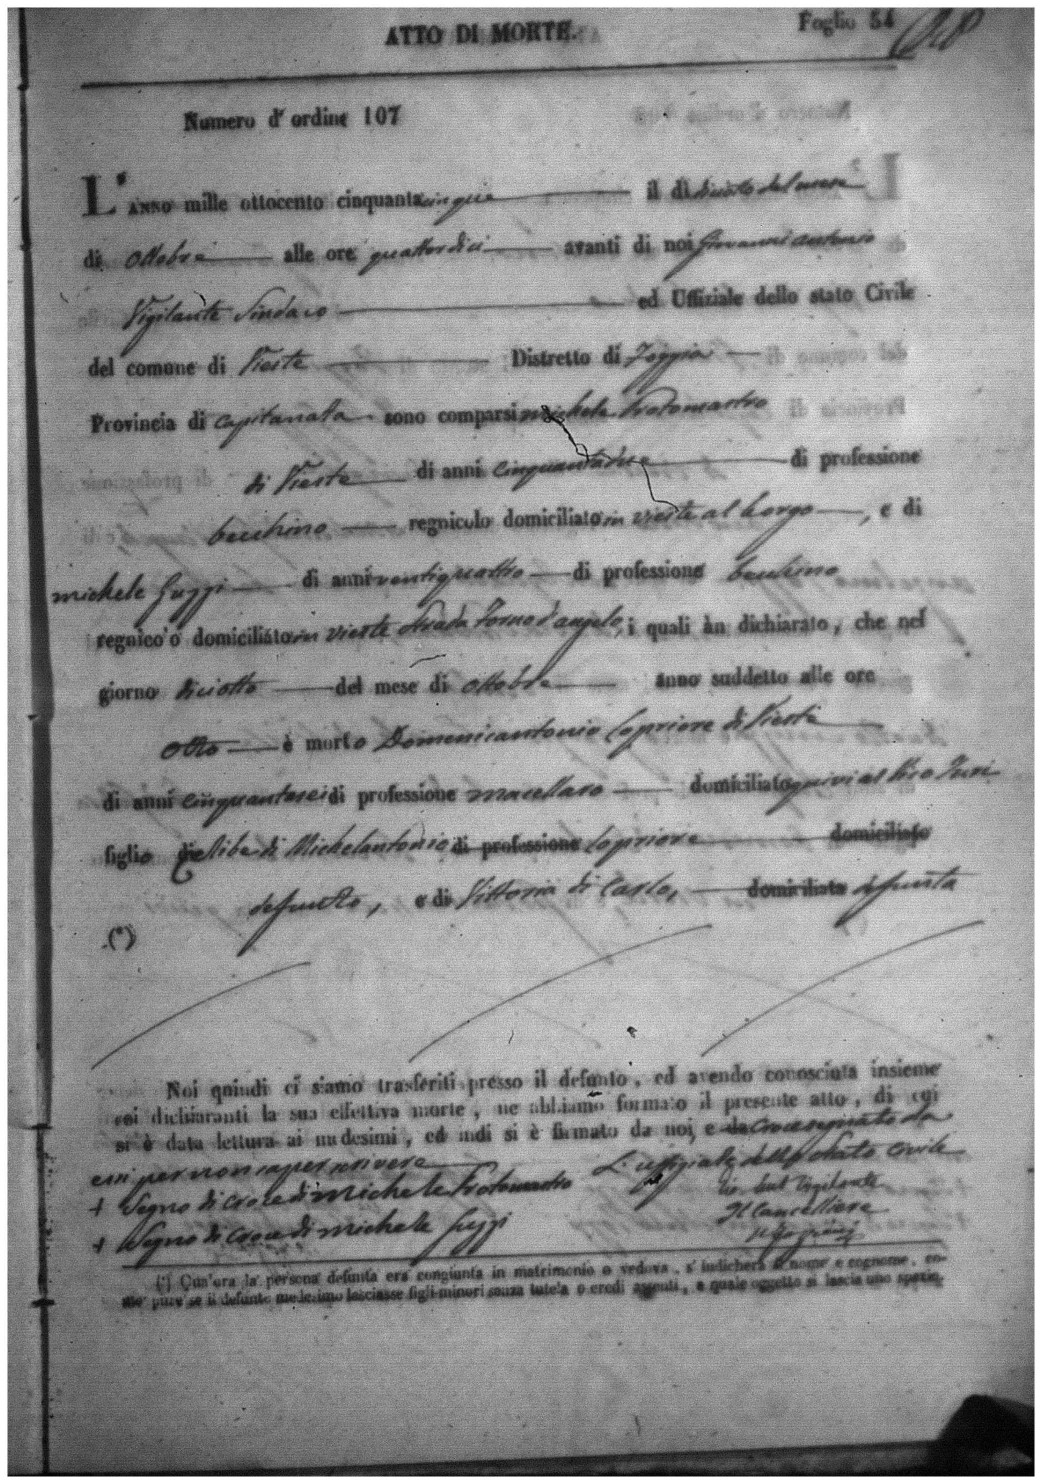 ATTO DI MORTE.
Foglio 54
Numero d'ordine 107
L'ANNO mille ottocento cinquantacinque il dì diciotto del mese
di Ottobre alle ore quattordici avanti di noi Giovanni Antonio
Vigilante Sindaco ed Uffiziale dello stato Civile
del comune di Vieste Distretto di Foggia
Provincia di Capitanata sono comparsi michele Protomastro
di Vieste di anni cinquantadue di professione
becchino regnicolo domiciliato in vieste al borgo, e di
michele Guzzi di anni ventiquattro di professione becchino
regnicolo domiciliato in vieste strada Forno d'angelo, i quali àn dichiarato, che nel
giorno diciotto del mese di ottobre anno suddetto alle ore
otto è morto Domenicantonio Lapriore di Vieste
di anni cinquantasei di professione macellaro domiciliato quivi al Vico
figlio di Michelantonio di professione Lapriore domiciliato
defunto, e di Vittoria di Carlo, domiciliata defunta
(*)
Noi quindi ci siamo trasferiti presso il defunto, ed avendo conosciuta insieme
coi dichiaranti la sua effettiva morte, ne abbiamo formato il presente atto, di cui
si è data lettura ai medesimi, ed indi si è firmato da noi, e da Crocesegnato da
essi per non saper scrivere
+ Segno di croce di michele Protomastro
L'uffiziale dello Stato civile
Vigilante
+ Segno di croce di michele Guzzi
Il Cancelliere
(*) Qualora la persona defunta era congiunta in matrimonio o vedova, s'indicherà il nome e cognome, co-
me pure se il defunto medesimo lasciasse figli minori senza tutela o eredi assenti, a quale oggetto si lascia uno spazio.